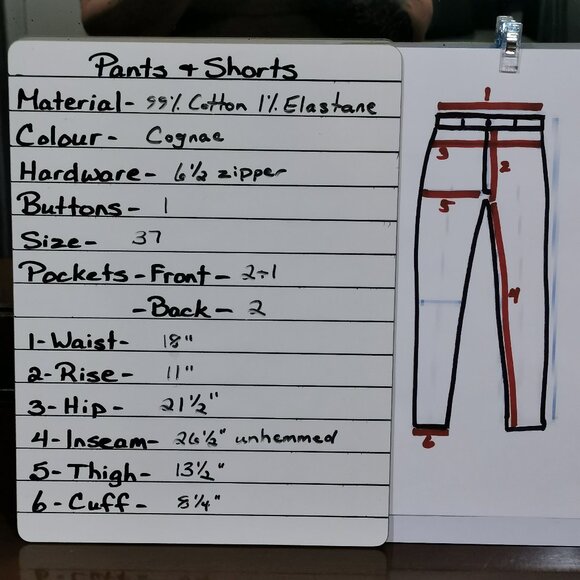 Pants + Shorts
Material- 99% Cotton 1% Elastane
Colour- Cognac
Hardware- 6½ zipper
Buttons- 1
Size- 37
Pockets-Front- 2+1
-Back- 2
1-Waist- 18"
2-Rise- 11"
3-Hip- 21½"
4-Inseam- 26½" unhemmed
5-Thigh- 13½"
6-Cuff- 8¼"
1
3
2
5
4
6